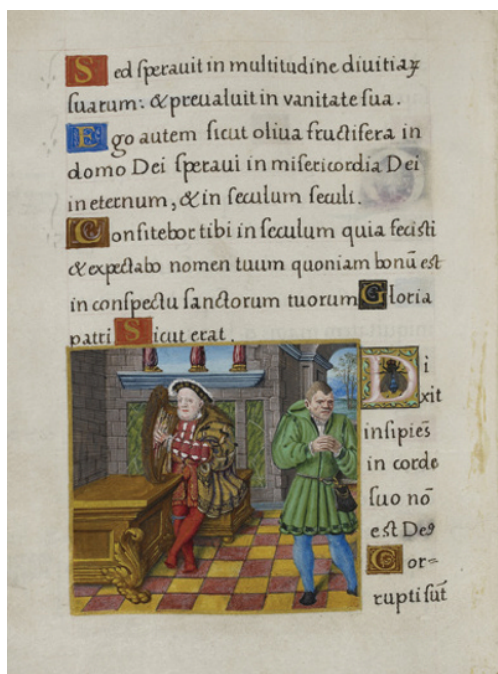 Sed sperauit in multitudine diuitiaꝝ
suarum: & preualuit in vanitate sua.
Ego autem sicut oliua fructifera in
domo Dei speraui in misericordia Dei
in eternum, & in seculum seculi.
Confitebor tibi in seculum quia fecisti
& expectabo nomen tuum quoniam bonū est
in conspectu sanctorum tuorum Gloria
patri Sicut erat.
Di
xit
insipiēs
in corde
suo nō
est Deꝰ
Cor=
rupti sūt